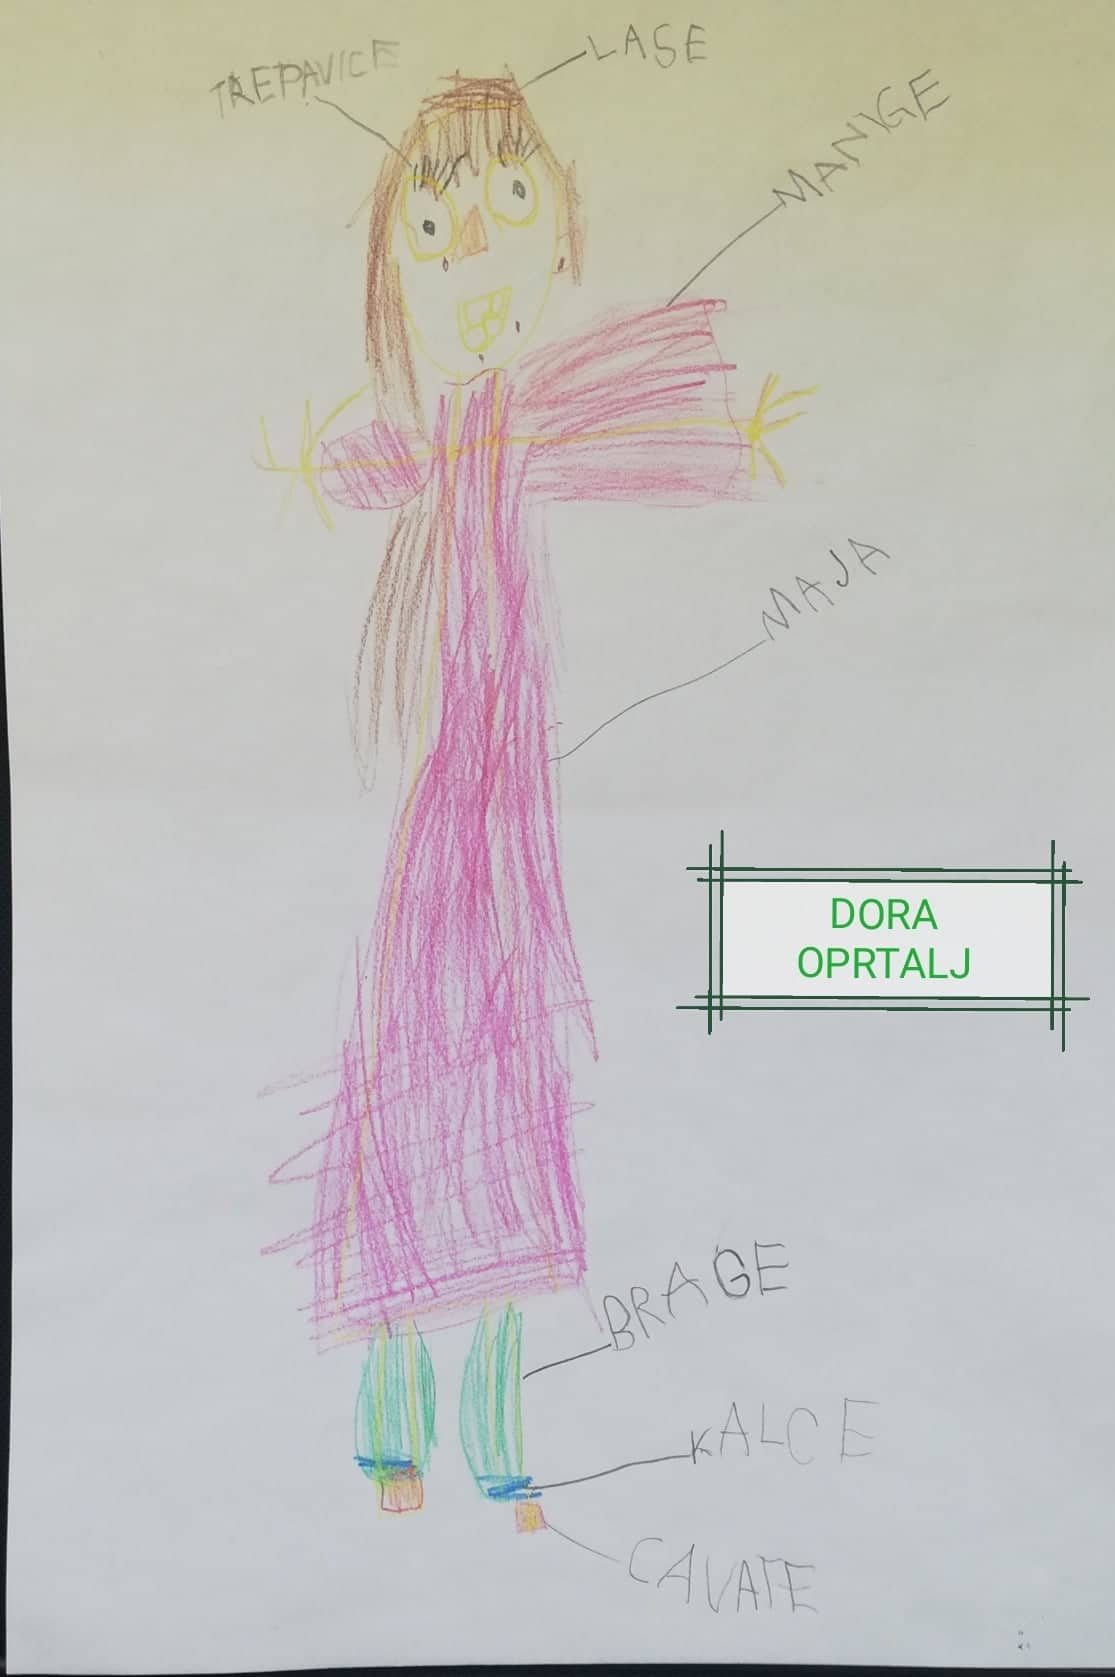 TREPAVICE
LASE
MANIGE
MAJA
DORA
OPRTALJ
BRAGE
KALCE
CAVATE